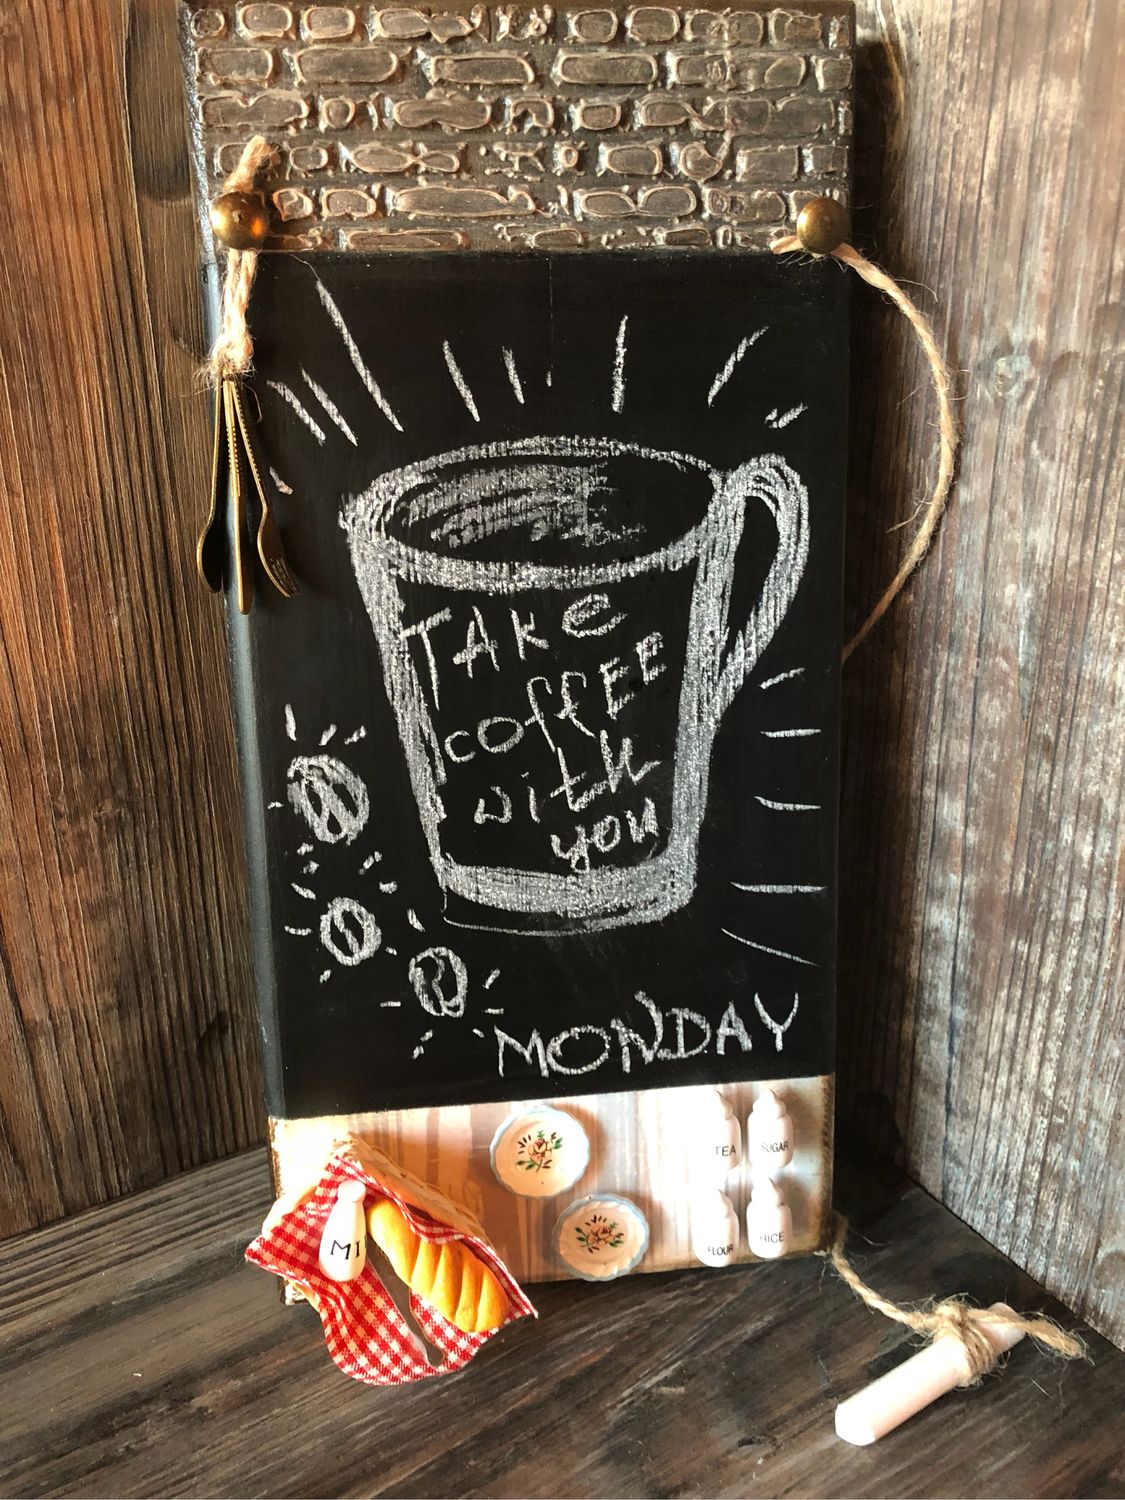 TAKe
coffEE
with
you
MONDAY
TEA SUGAR
FLOUR RICE
MI